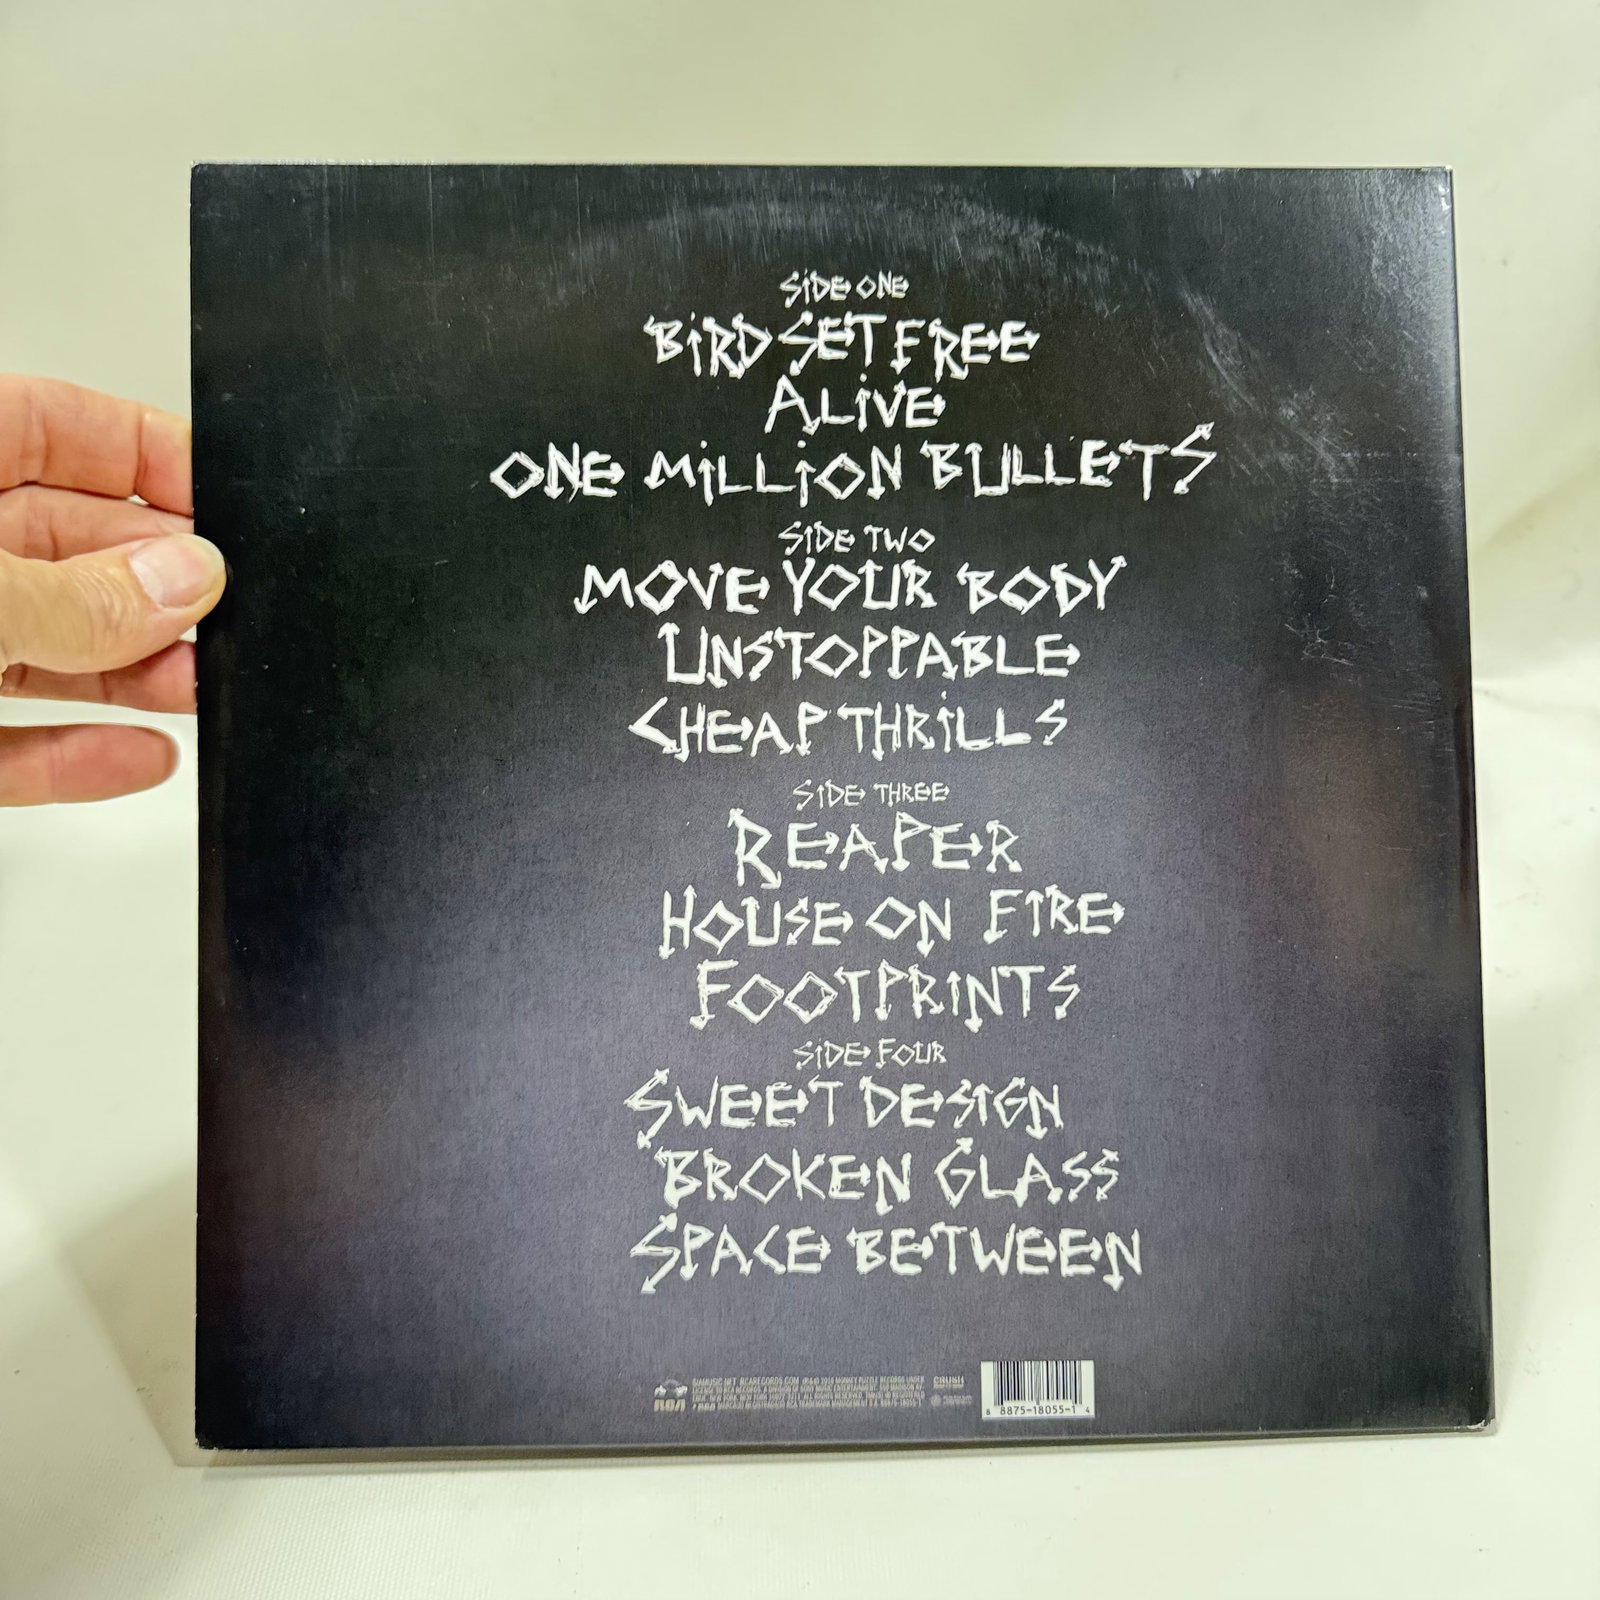 SIDE ONE
BIRD SET FREE
ALIVE
ONE MILLION BULLETS
SIDE TWO
MOVE YOUR BODY
UNSTOPPABLE
CHEAP THRILLS
SIDE THREE
REAPER
HOUSE ON FIRE
FOOTPRINTS
SIDE FOUR
SWEET DESIGN
BROKEN GLASS
SPACE BETWEEN
SIAMUSIC.NET RCARECORDS.COM ℗&© 2016 MONKEY PUZZLE RECORDS UNDER
LICENSE TO RCA RECORDS, A DIVISION OF SONY MUSIC ENTERTAINMENT, 550 MADISON AV-
ENUE, NEW YORK, NEW YORK 10022-3211. ALL RIGHTS RESERVED.
RCA
CRUSH
8 8875-18055-1 4